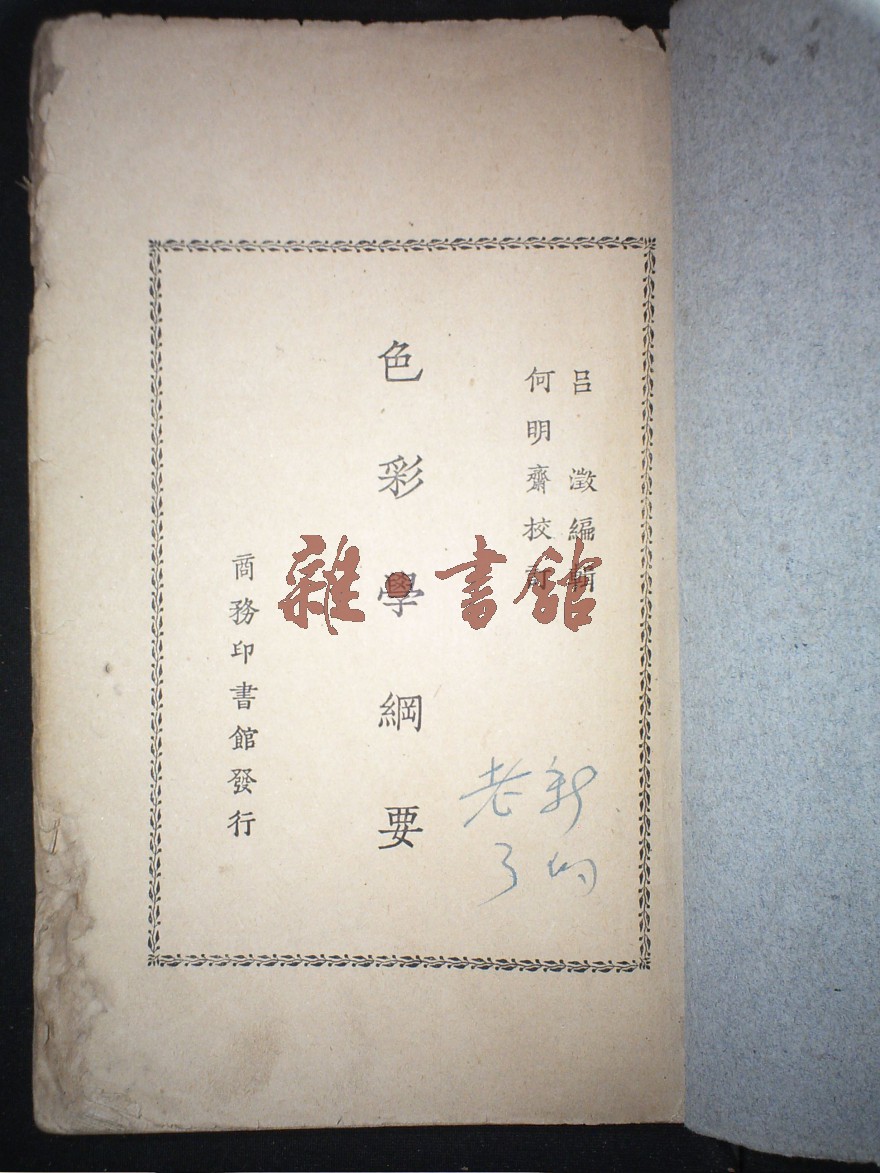 呂澂編輯
何明齋校訂
色彩學綱要
商務印書館發行
新的
老了
雜書館